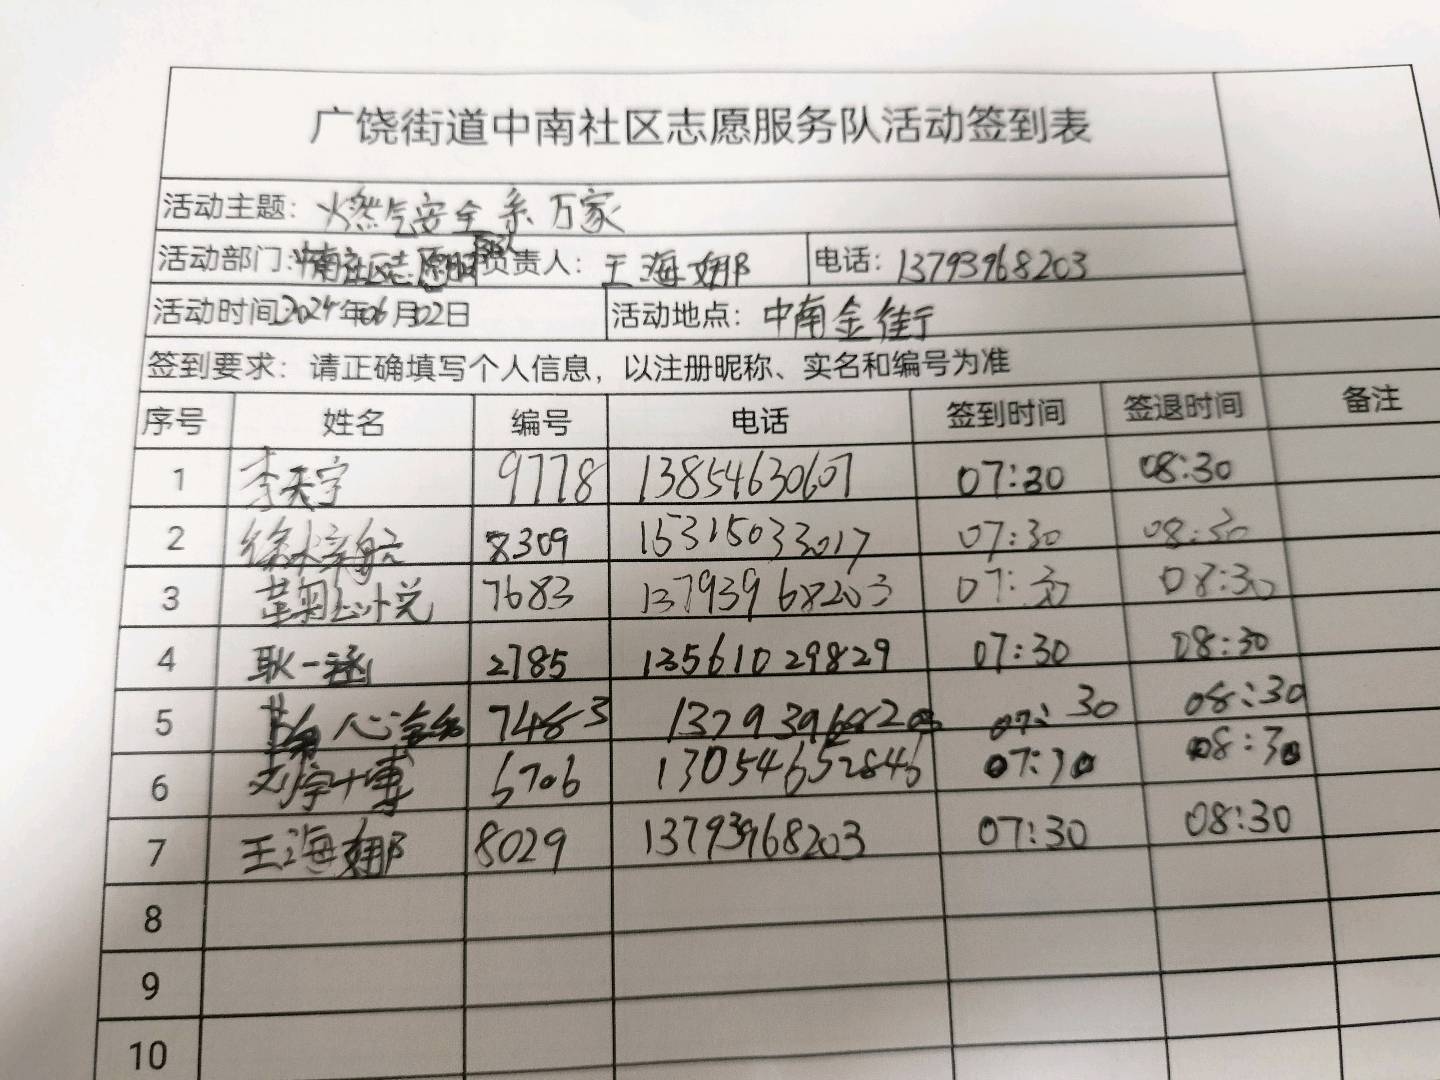 广饶街道中南社区志愿服务队活动签到表
活动主题：燃气安全系万家
活动部门：中南社区志愿服务队 负责人：王海娜 电话：13793968203
活动时间：2024年06月02日 活动地点：中南金街
签到要求：请正确填写个人信息，以注册昵称、实名和编号为准
序号 姓名 编号 电话 签到时间 签退时间 备注
1 李天宇 9778 13854630607 07:30 08:30
2 8309 15315033017 07:30 08:30
3 7683 13793968203 07:30 08:30
4 耿一涵 2785 13561029829 07:30 08:30
5 7483 13793968203 07:30 08:30
6 刘宇博 6706 13054652846 07:30 08:30
7 王海娜 8029 13793968203 07:30 08:30
8
9
10